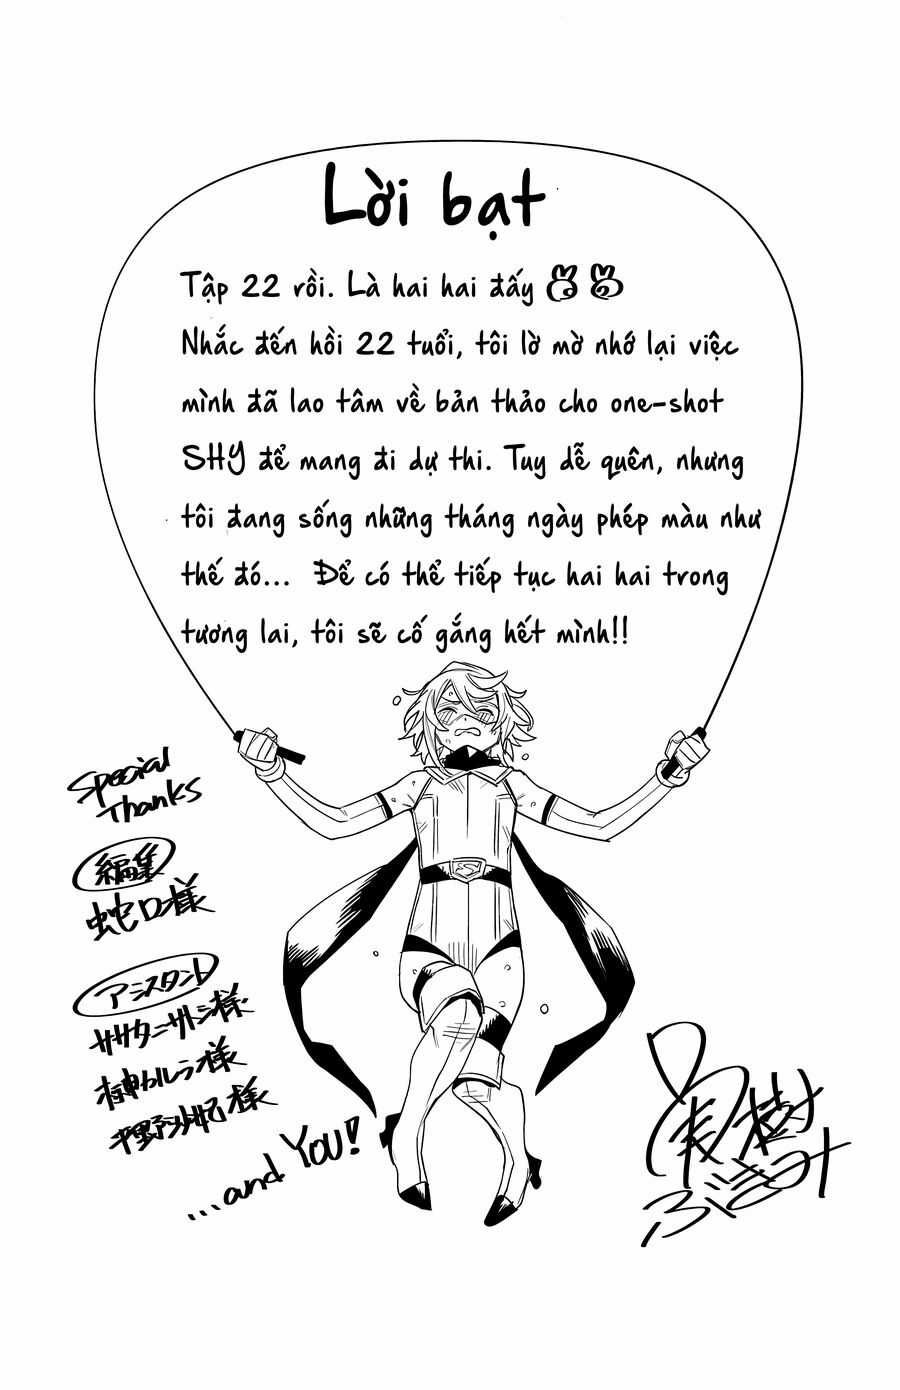 Lời bạt
Tập 22 rồi. Là hai hai đấy
Nhắc đến hồi 22 tuổi, tôi lờ mờ nhớ lại việc
mình đã lao tâm về bản thảo cho one-shot
SHY để mang đi dự thi. Tuy dễ quên, nhưng
tôi đang sống những tháng ngày phép màu như
thế đó... Để có thể tiếp tục hai hai trong
tương lai, tôi sẽ cố gắng hết mình!!
Special
Thanks
編集
蛇口様
アシスタント
ササタニサトシ様
様
平野 様
...and YOU!
S
実樹
ぶきみ